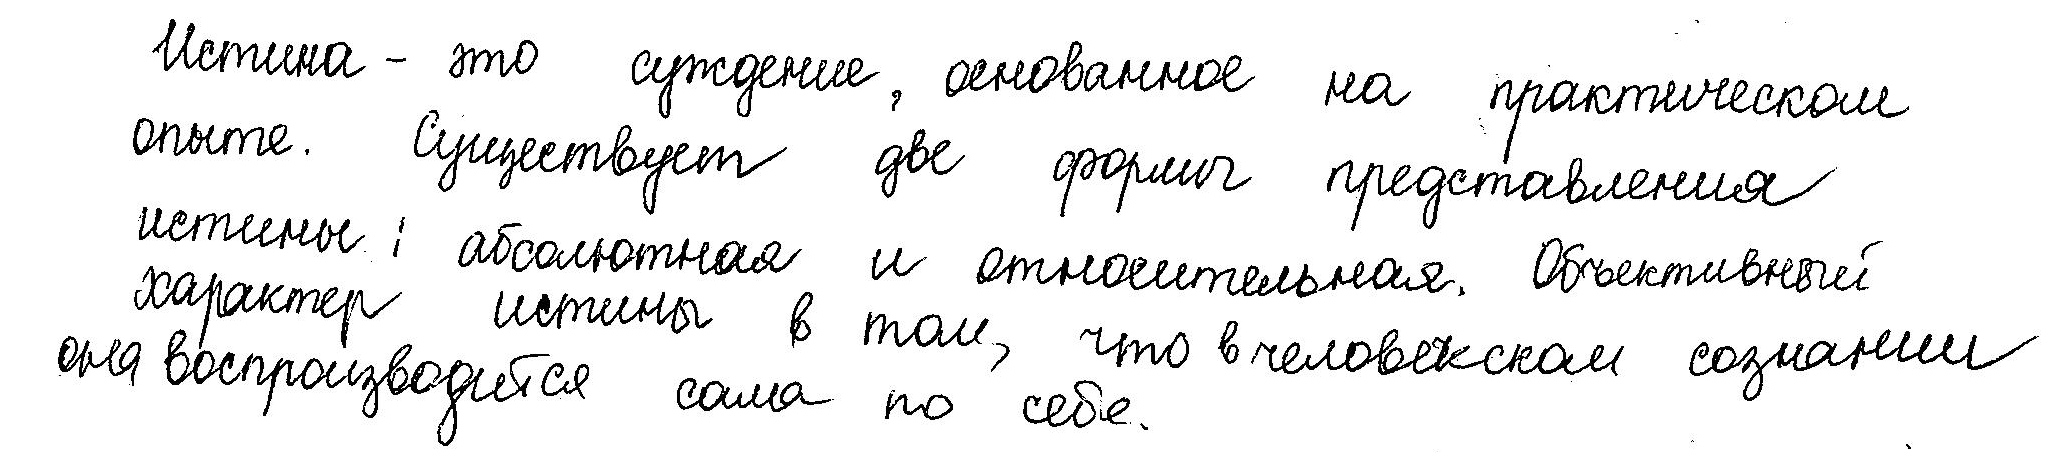 Истина - это суждение, основанное на практическом
опыте. Существует две формы представления
истины: абсолютная и относительная. Объективный
характер истины в том, что в человекском сознании
она воспроизводится сама по себе.